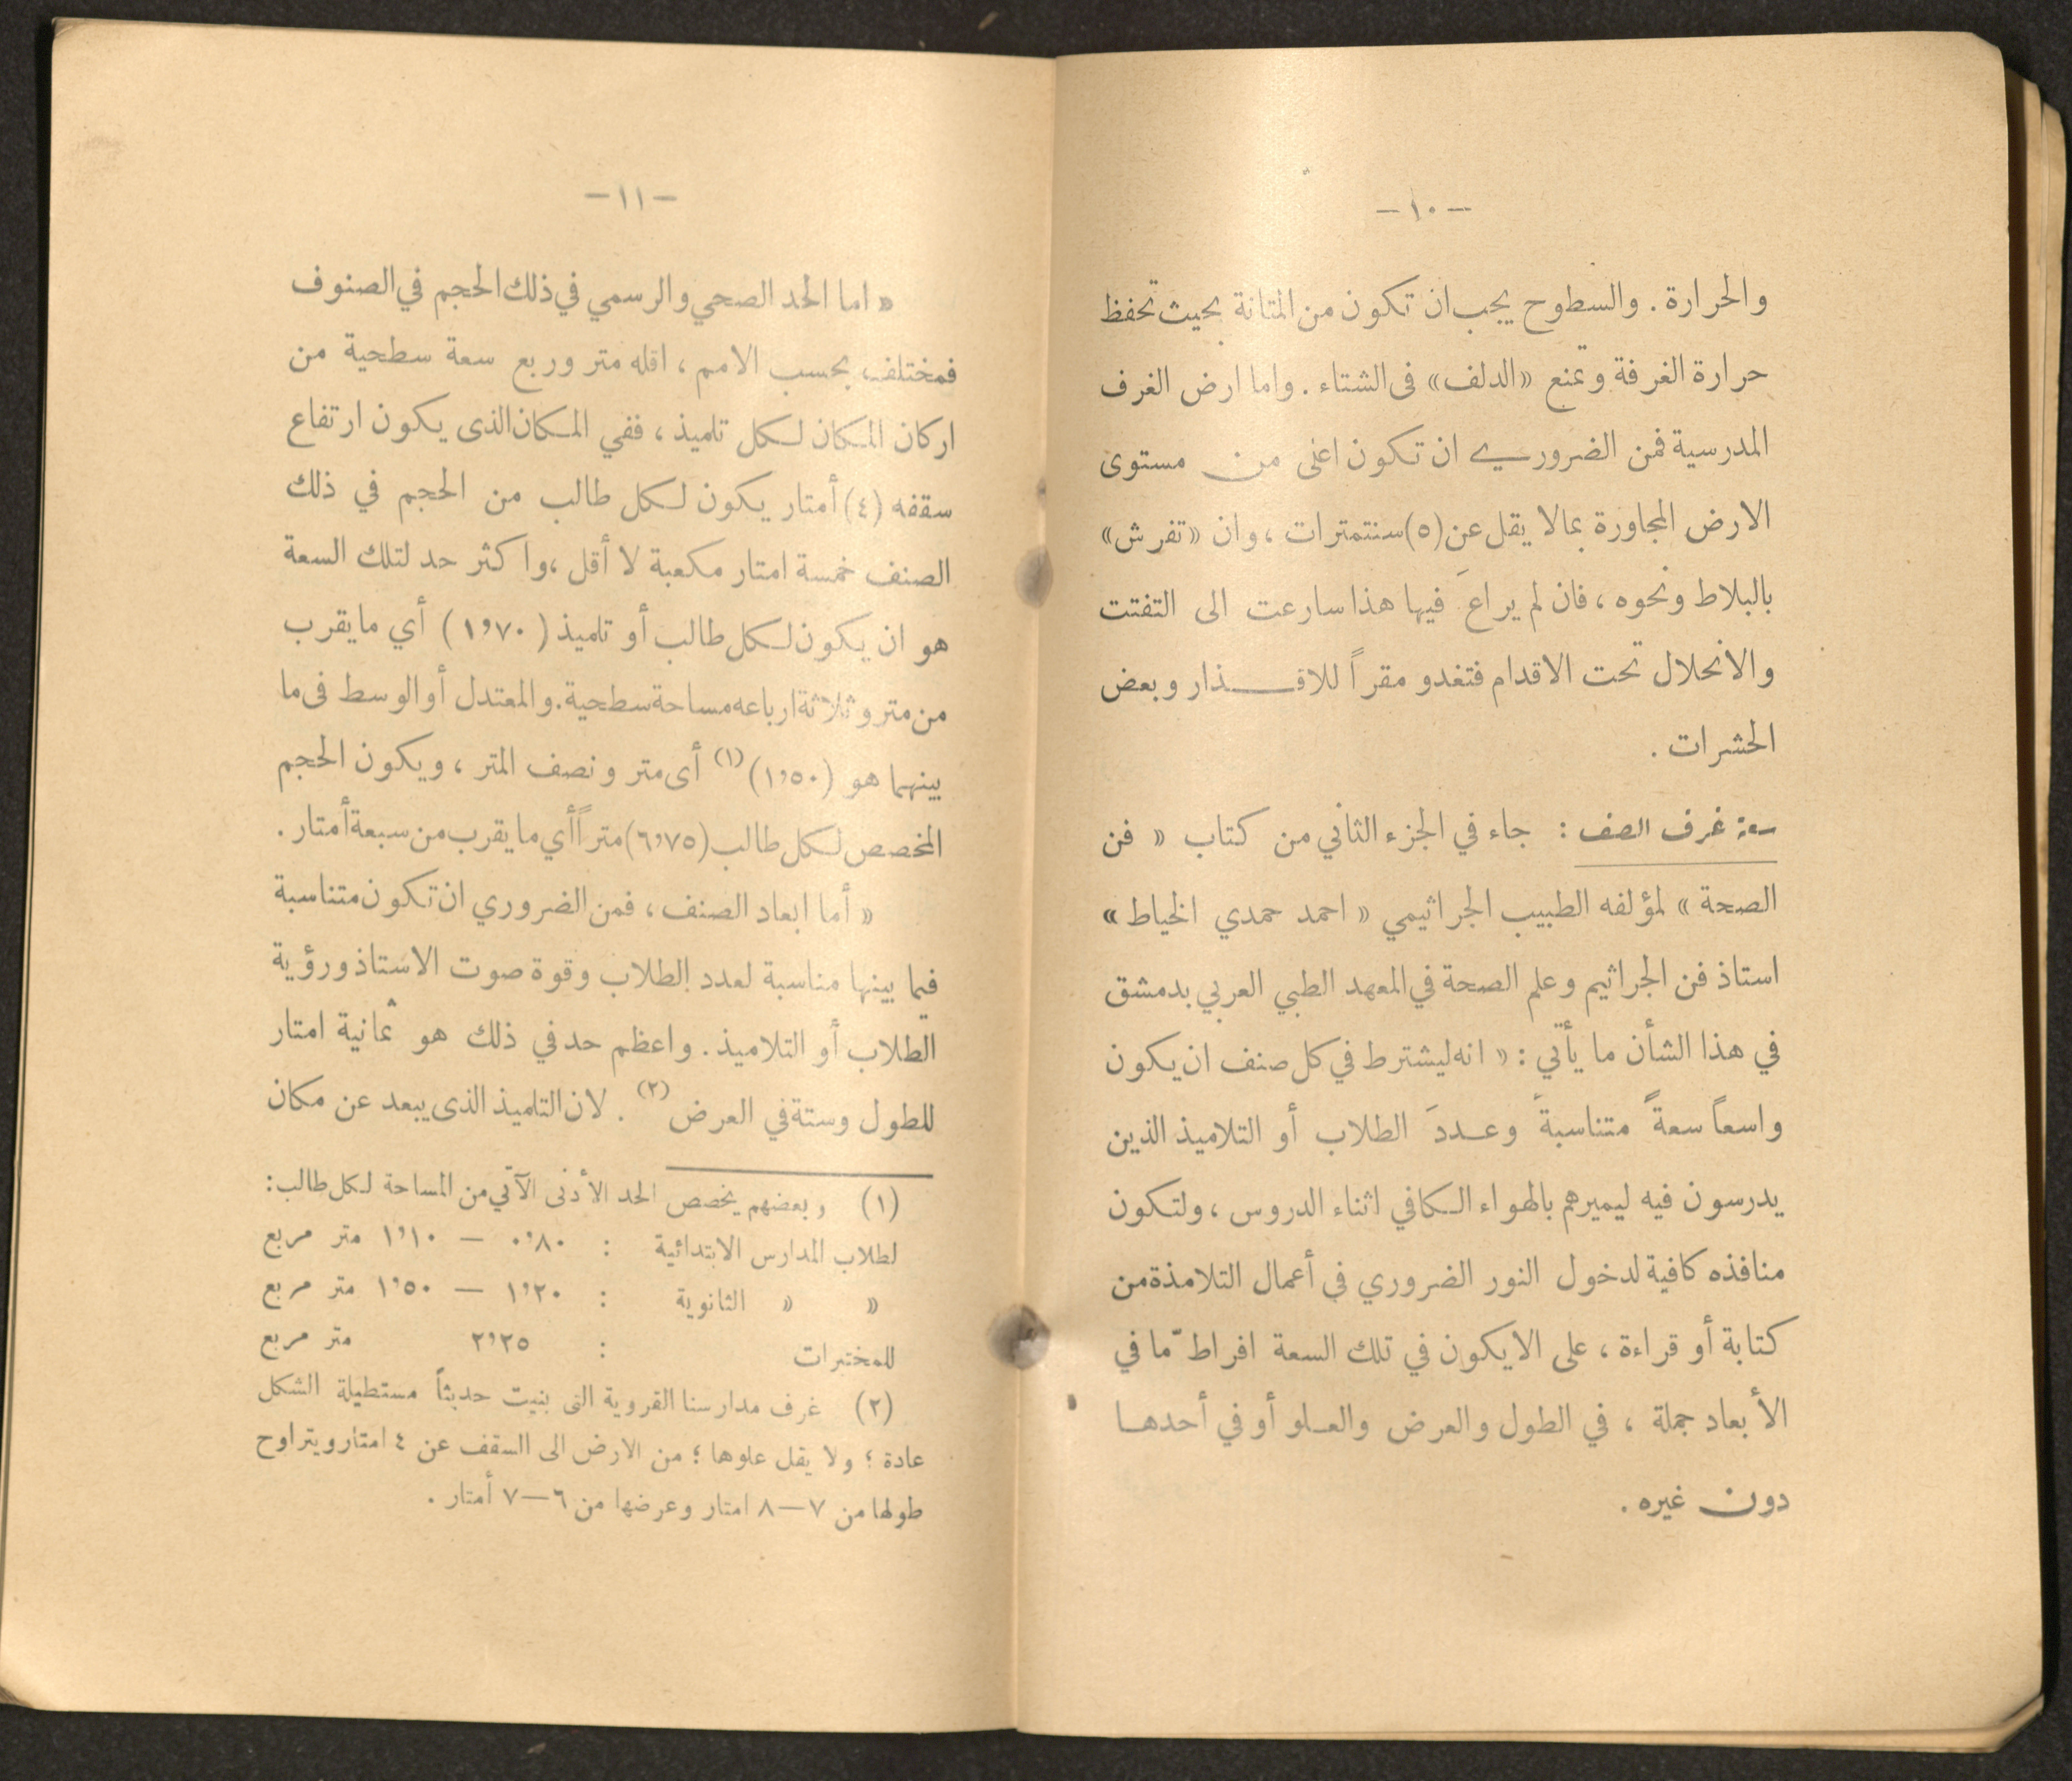 — ١٠ —
والحرارة . والسطوح يجب ان تكون من المتانة بحيث تحفظ
حرارة الغرفة وتمنع «الدلف» فى الشتاء . واما ارض الغرف
المدرسية فمن الضروري ان تكون اعلى من مستوى
الارض المجاورة بمالا يقل عن (٥) سنتمترات ، وان «تفرش»
بالبلاط ونحوه ، فان لم يراعَ فيها هذا سارعت الى التفتت
والانحلال تحت الاقدام فتغدو مقراً للاقـذار وبعض
الحشرات .
سعة غرف الصف : جاء في الجزء الثاني من كتاب « فن
الصحة » لمؤلفه الطبيب الجراثيمي « احمد حمدي الخياط »
استاذ فن الجراثيم وعلم الصحة في المعهد الطبي العربي بدمشق
في هذا الشأن ما يأتي : « انه ليشترط في كل صنف ان يكون
واسعاً سعةً متناسبةً وعـددَ الطلاب أو التلاميذ الذين
يدرسون فيه ليميرهم بالهواء الكافي اثناء الدروس ، ولتكون
منافذه كافية لدخول النور الضروري في أعمال التلامذة من
كتابة أو قراءة ، على الا يكون في تلك السعة افراط ّما في
الأ بعاد جملة ، في الطول والعرض والعـلو أو في أحدهـا
دون غيره .
— ١١ —
« اما الحد الصحي والرسمي في ذلك الحجم في الصنوف
فمختلف بحسب الامم ، اقله متر وربع سعة سطحية من
اركان المكان لكل تلميذ ، ففي المكان الذى يكون ارتفاع
سقفه (٤) أمتار يكون لكل طالب من الحجم في ذلك
الصنف خمسة امتار مكعبة لا أقل ، واكثر حد لتلك السعة
هو ان يكون لكل طالب أو تلميذ ( ١٫٧٠ ) أي ما يقرب
من متر وثلاثة ارباعه مساحة سطحية . والمعتدل أو الوسط فى ما
بينهما هو (١٫٥٠) (١) أى متر ونصف المتر ، ويكون الحجم
المخصص لكل طالب (٦٫٧٥) متراً أي ما يقرب من سبعة أمتار .
« أما ابعاد الصنف ، فمن الضروري ان تكون متناسبة
فيما بينها مناسبة لعدد الطلاب وقوة صوت الاستاذ ورؤية
الطلاب أو التلاميذ . واعظم حد في ذلك هو ثمانية امتار
للطول وستة في العرض (٢) . لان التلميذ الذى يبعد عن مكان
(١) وبعضهم يخصص الحد الأدنى الآتي من المساحة لكل طالب :
لطلاب المدارس الابتدائية : ٠٫٨٠ — ١٫١٠ متر مربع
« « الثانوية : ١٫٢٠ — ١٫٥٠ متر مربع
للمختبرات : ٢٫٢٥ متر مربع
(٢) غرف مدارسنا القروية التى بنيت حديثاً مستطيلة الشكل
عادة ؛ ولا يقل علوها ؛ من الارض الى السقف عن ٤ امتار ويتراوح
طولها من ٧—٨ امتار وعرضها من ٦—٧ أمتار .